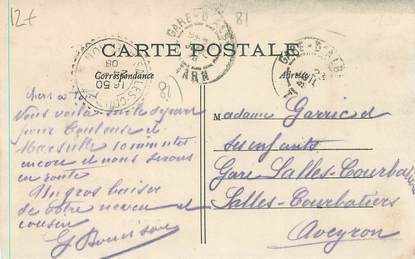 12f
81
CARTE POSTALE
Correspondance
Adresse
GARE-D'ALBI
TARN
GARE-D'ALBI
23
16 50
24
08
81
Nous voilà sur le départ
pour Toulouse et
Marseille 10 minutes
encore et nous serons
en route
Un gros baiser
de votre neveu et
cousin
Madame Garric et
ses enfants
Gare Salles-Courbatiers
Salles-Courbatiers
Aveyron